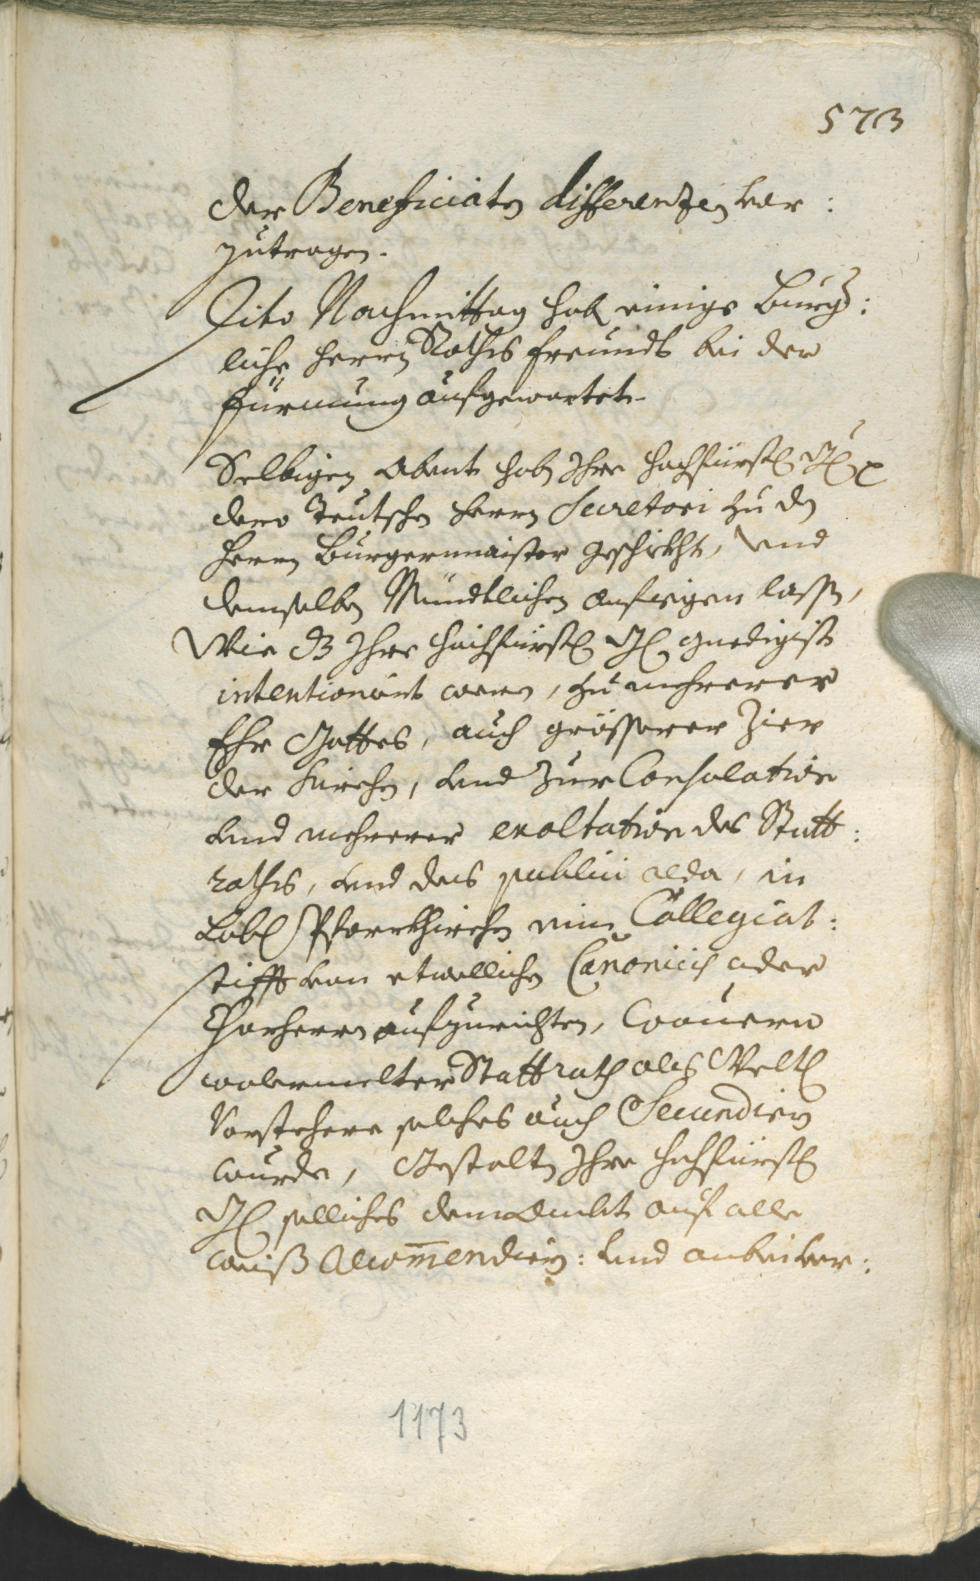 573
der Beneficiaten differenzen vor:
zutragen.
Dito Nachmittag hab einige Burger:
liche Herrn Raths freundt bei der
Fürmung aufgewartet.
Selbigen Abent hab Ihre hochfürstl: Gl:
dero Teutschen Herrn Secretari zu dn
Herrn Burgermaister geschikht, vnd
demselben Mündtlichen anfiegen lassen,
Wie dz Ihre hochfürstl: Gl: gnedigist
intentionirt weren, zu mehrerer
Ehr Gottes, auch grösserer Zier
der Kirchen, vnd zur Consolation
vnd mehrerer exaltation des Statt:
raths, vnd des publici alda, in
Löbl: Pfarrkhirchen ein Collegiat:
stifft von etwellichen Canonicis oder
Chorherrn aufzurichten, Wouern
wolermelter Stattrath als Weltl:
Vorstehere solches auch Secundiern
wurde, Gestalten Ihre hochfürstl:
Gl: solliches dem Ambt auf alle
weiß Recomendiern: vnd anbei ver:
1173